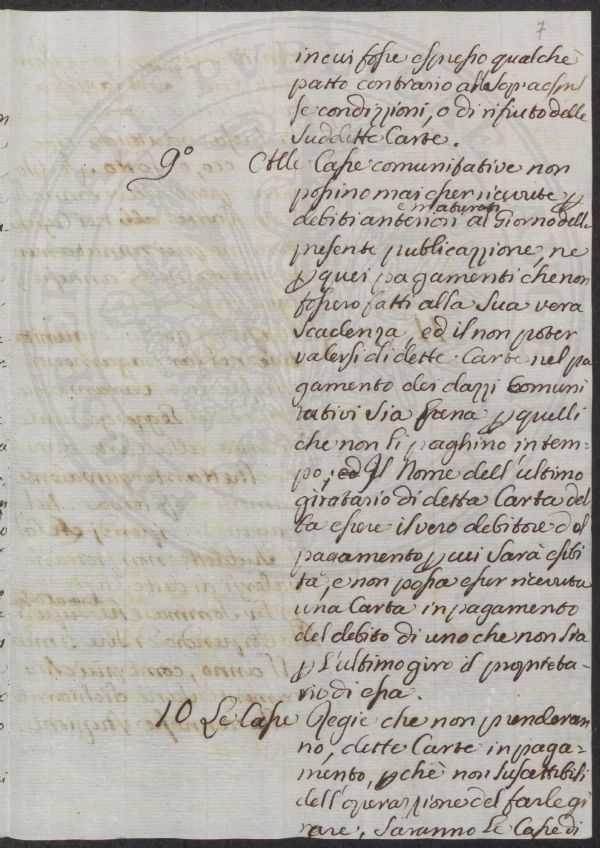 7
in cui fosse espresso qualche
patto contrario alle sopraespres
se condizzioni, o di rifiuto delle
suddette Carte.
9° Alle Casse comunitative non
possino mai esser ricevute p
debiti anteriori e maturati al Giorno della
presente publicazzione, ne
p quei pagamenti che non
fossero fatti alla sua vera
scadenza, ed il non poter
valersi di dette Carte nel pa
gamento dei dazzi Comuni
tativi sia pena p quelli
che non li paghino in tem
po, ed Il Nome dell'ultimo
giratario di detta Carta deb
ba essere il vero debitore del
pagamento p cui sarà esibi
ta, e non possa esser ricevuta
una Carta in pagamento
del debito di uno che non sia
p l'ultimo giro il proprieta-
rio di essa.
10 Le Casse Regie che non prenderan
no, dette Carte in paga-
mento, pchè non suscettibili
dell'operazzione del farle gi
rare, saranno le Casse di